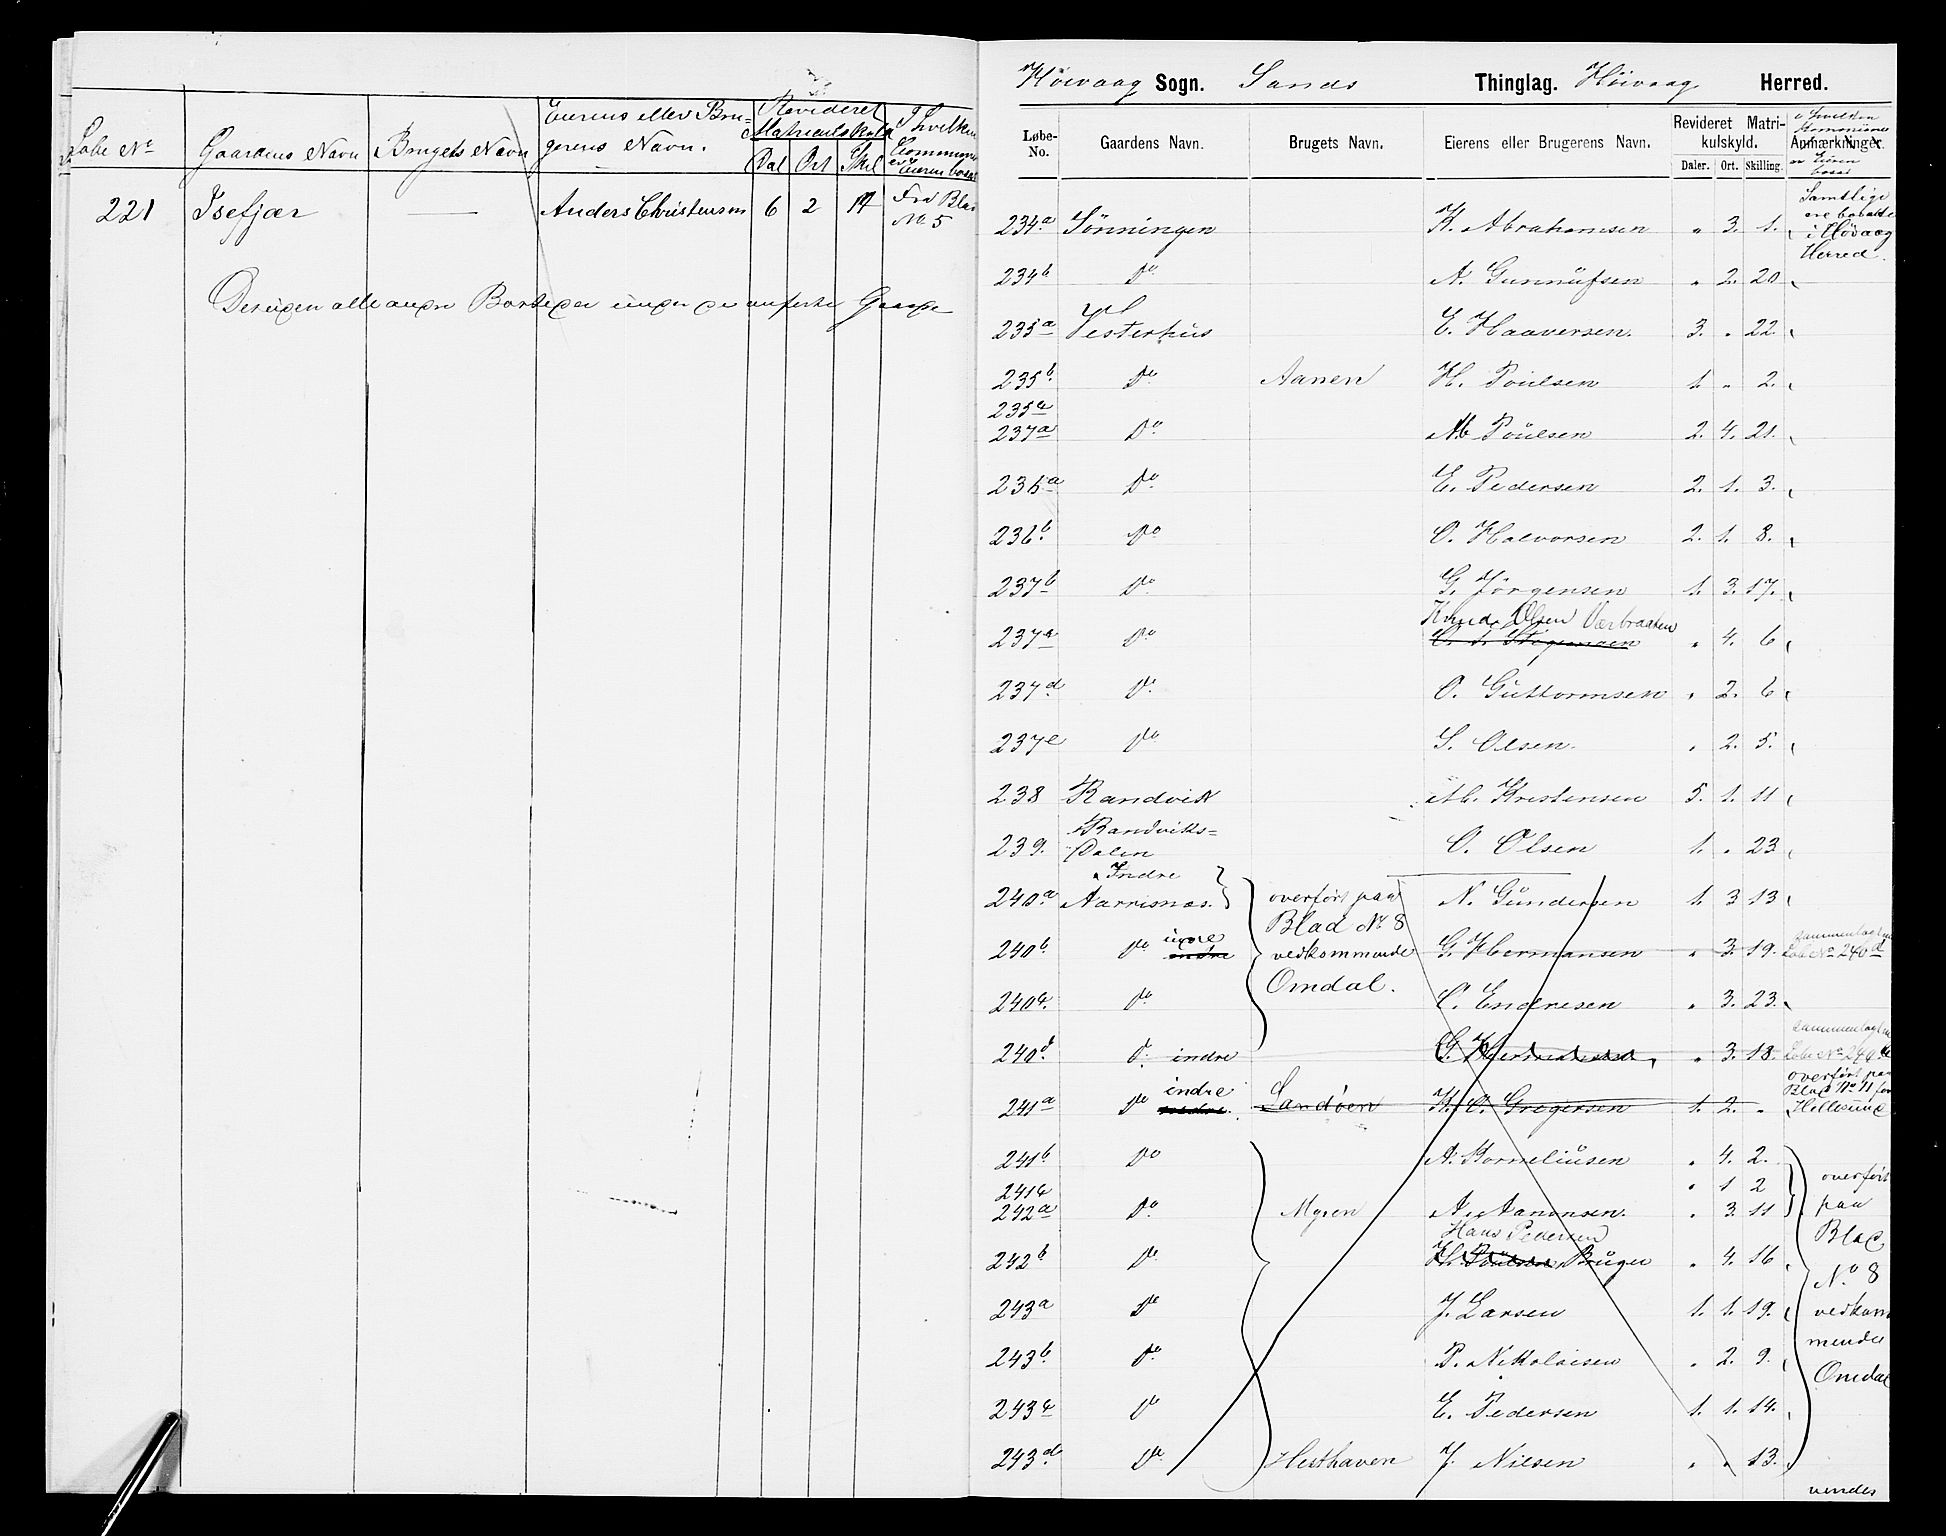 Løbe No Gaardens Navn Brugets Navn Eierens eller Bru-
gerens Navn. Revideret
Matriculskyld
Dal Ort Skil I hvilken
Commune
er Eieren bosat
221 Isefjær — Anders Christensen 6 2 17 Fra Blad
No 5
Desuden alle andre Bortedeer under de anførte Gaarde
Höivaag Sogn. Sands Thinglag. Höivaag Herred.
Løbe-
No. Gaardens Navn. Brugets Navn. Eierens eller Brugerens Navn. Revideret Matri-
kulskyld.
Daler. Ort. Skilling. i hvilken
Kommune
Anmærkninger.
er Eieren
bosat
234a Sönningen K. Abrahamsen " 3. 1. Samtlige
ere bosatte
i Høvaag
Herred.
234b Do A. Gunnüfsen " 2. 20
235a Vesterhus E. Haaversen. 3. " 22.
235b. Do Aanen H. Poulsen 1. " 2.
235c
237a Do N. Poülsen 2. 4. 21.
236a Do E. Pedersen 2. 1. 3.
236b. Do O. Halvorsen 2. 1. 8.
237b Do G. Jörgensen 1. 3. 17.
Knud Olsen Værbraaten
237c Do " 4. 6
237d Do O. Güttormsen " 2. 6
237e Do S. Olsen. " 2. 5.
238 Randvik M. Kristensen 5. 1. 11
239. Randviks=
Dalen O. Olsen 1. " 23
Indre
240a Aarrisnæs. overført paa N. Gündersen 1. 3 13
Blad No 8
240b Do indre vedkommende G. Hermansen " 3. 19. sammenlagt m
Løbe No 240d
Omdal.
240c. Do O. Endresen " 3. 23.
240d. Do indre G. Hermansen " 3. 18. sammenlagt m
Løbe No 240b
241a Do indre Sandöen K. O. Gregersen 1. 2. " overført paa
Blad No 11 for
Hellesund
241b Do A. Korneliüsen " 4. 2.
241c " 1 2
242a Do Myren A. Aanonsen. " 3. 11
Hans Pedersen
242b Do H. Poülsen, Brüger " 4. 16
243a Do J. Larsen 1. 1. 19.
243b. Do P. Nikolaisen " 2. 9.
243c Do E. Pedersen 1. 1. 14.
243d. Do Hesthaven J. Nilsen " " 13.
overført
paa
Blad
No 8
vedkom
mende
Omdal
vendes